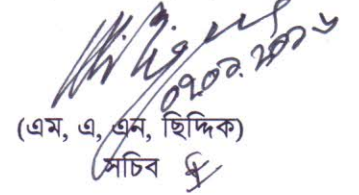 ০৭.০৯.২০১৬
(এম, এ, এন, ছিদ্দিক)
সচিব